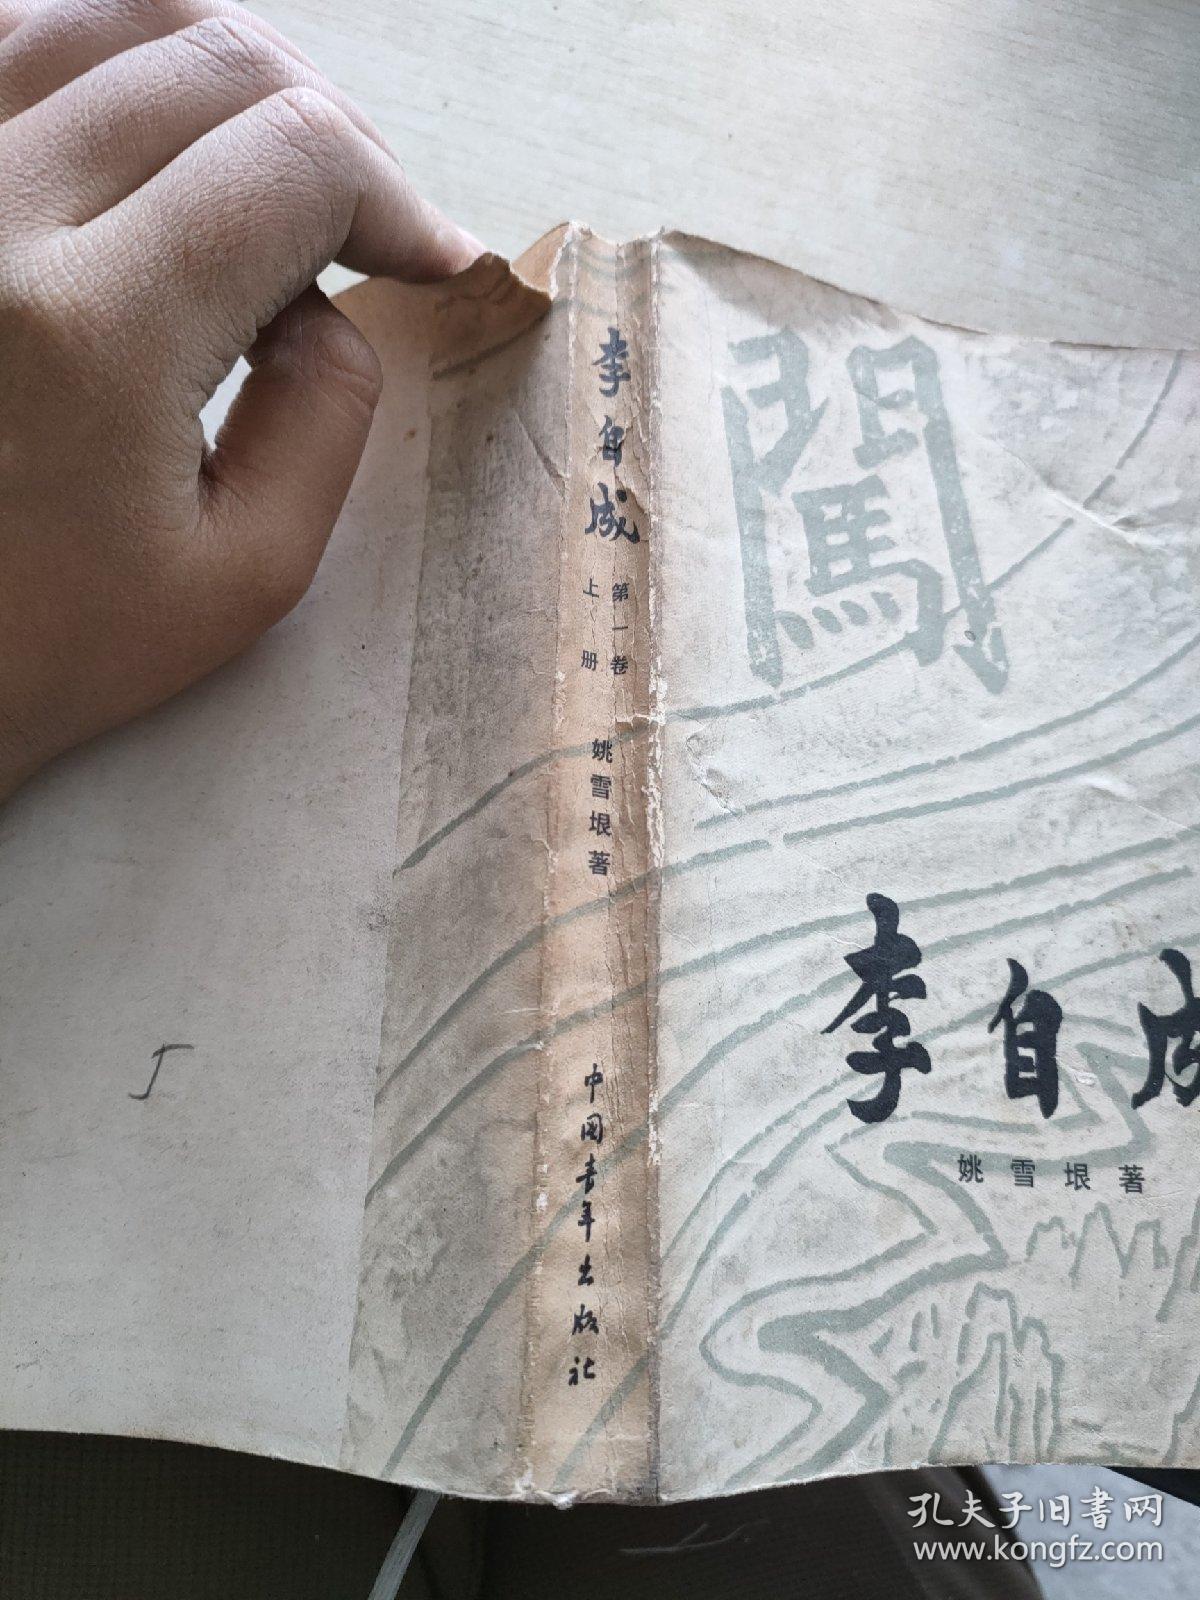 李自成
第一卷
上册
姚雪垠著
中国青年出版社
闯
李自成
姚雪垠著
孔夫子旧书网
www.kongfz.com